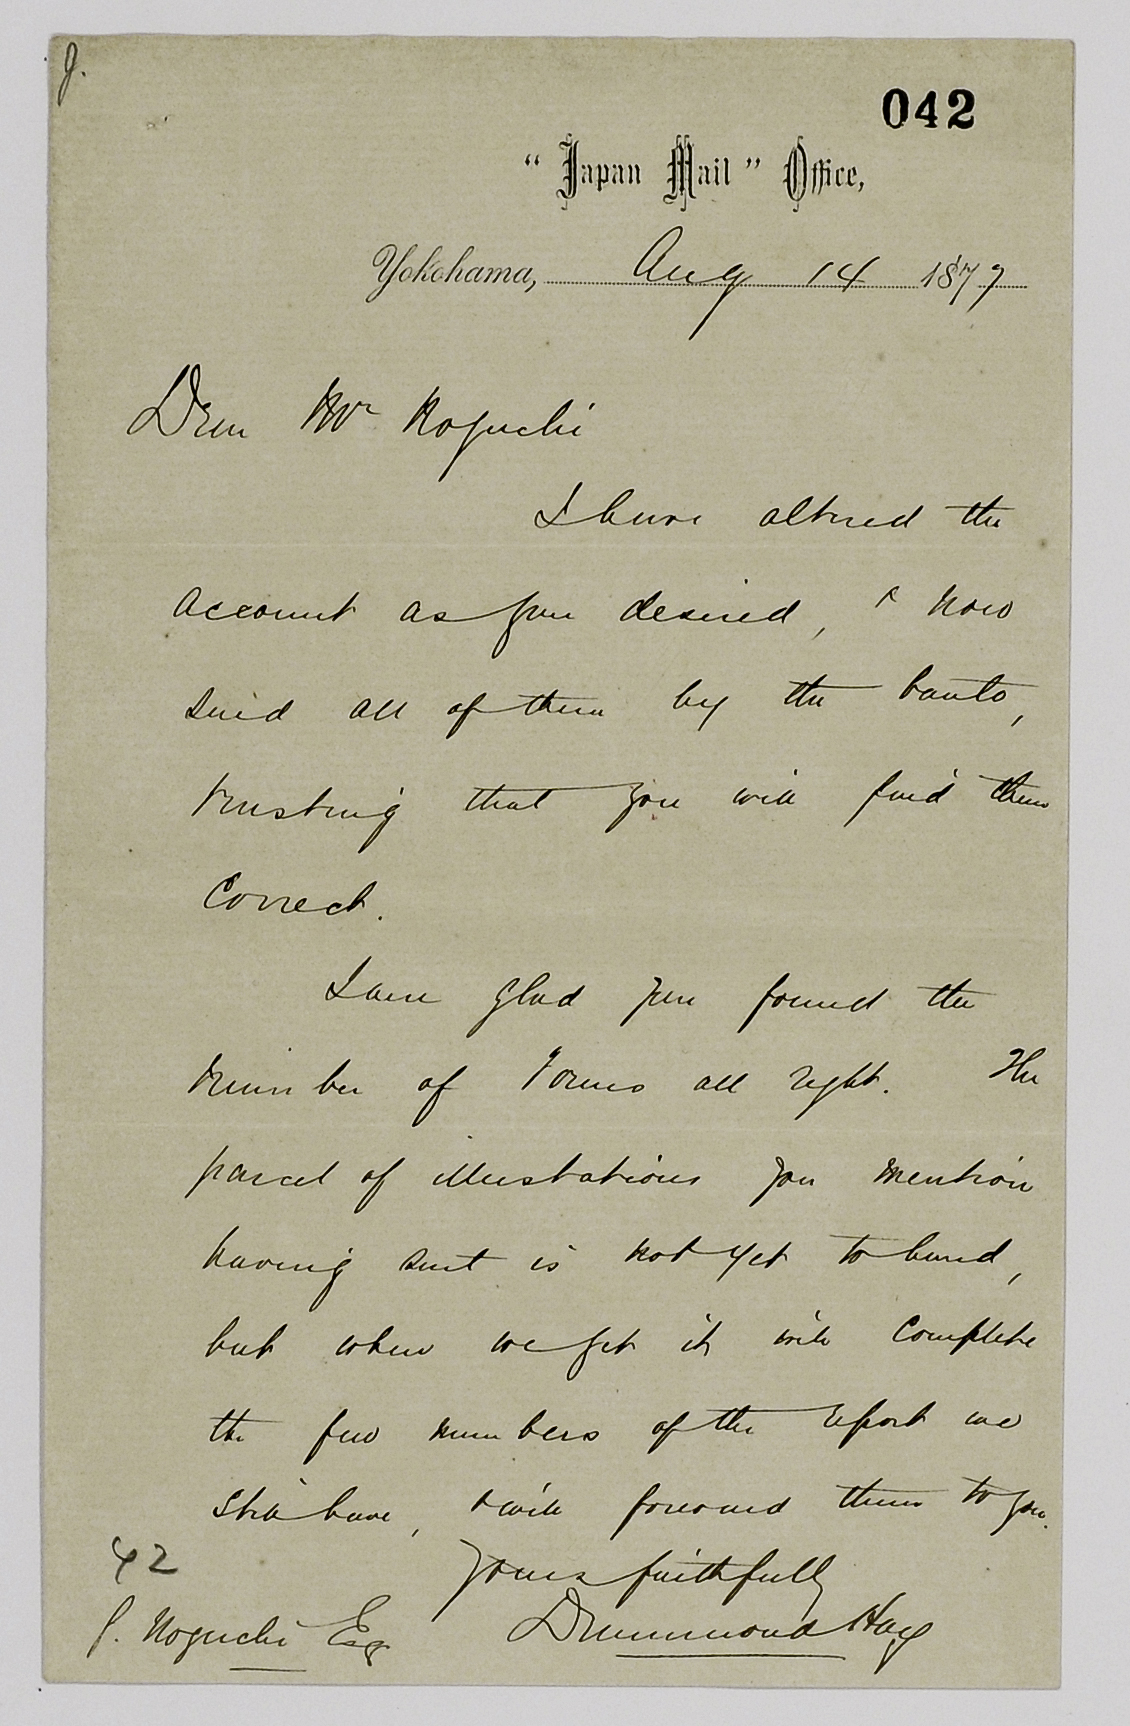 J.
042
"Japan Mail" Office,
Yokohama, Aug 14 1877
Dear Mr Noguchi
I have altered the
account as you desired, & now
send all of them by the banto,
trusting that you will find them
correct.
I am glad you found the
number of Forms all right. The
parcel of illustrations you mention
having sent is not yet to hand,
but when we get it will complete
the few numbers of the report we
still have, & will forward them to you.
Yours faithfully
Drummond Hay
42
J. Noguchi Esq